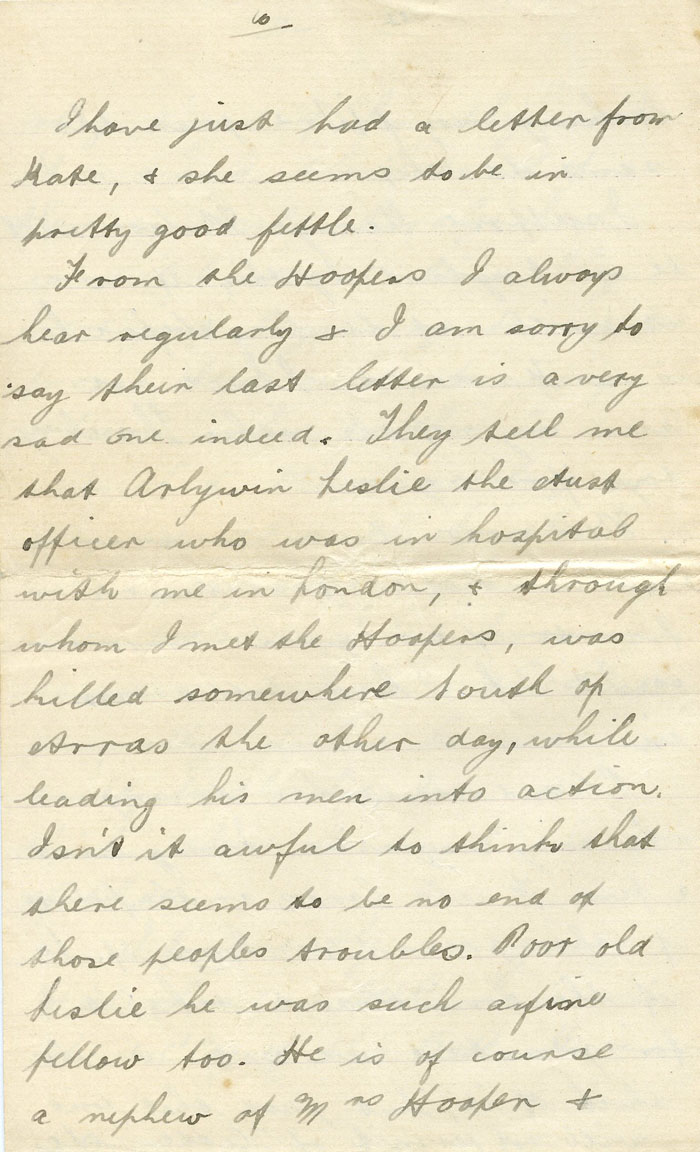 6
I have just had a letter from
Kate, & she seems to be in
pretty good fettle.
From the Hoopers I always
hear regularly & I am sorry to
say their last letter is a very
sad one indeed. They tell me
that Arlywin Leslie the Aust
officer who was in hospital
with me in London, & through
whom I met the Hoopers, was
killed somewhere South of
Arras the other day, while
leading his men into action.
Isn't it awful to think that
there seems to be no end of
those peoples troubles. Poor old
Leslie he was such a fine
fellow too. He is of course
a nephew of Mrs Hooper &